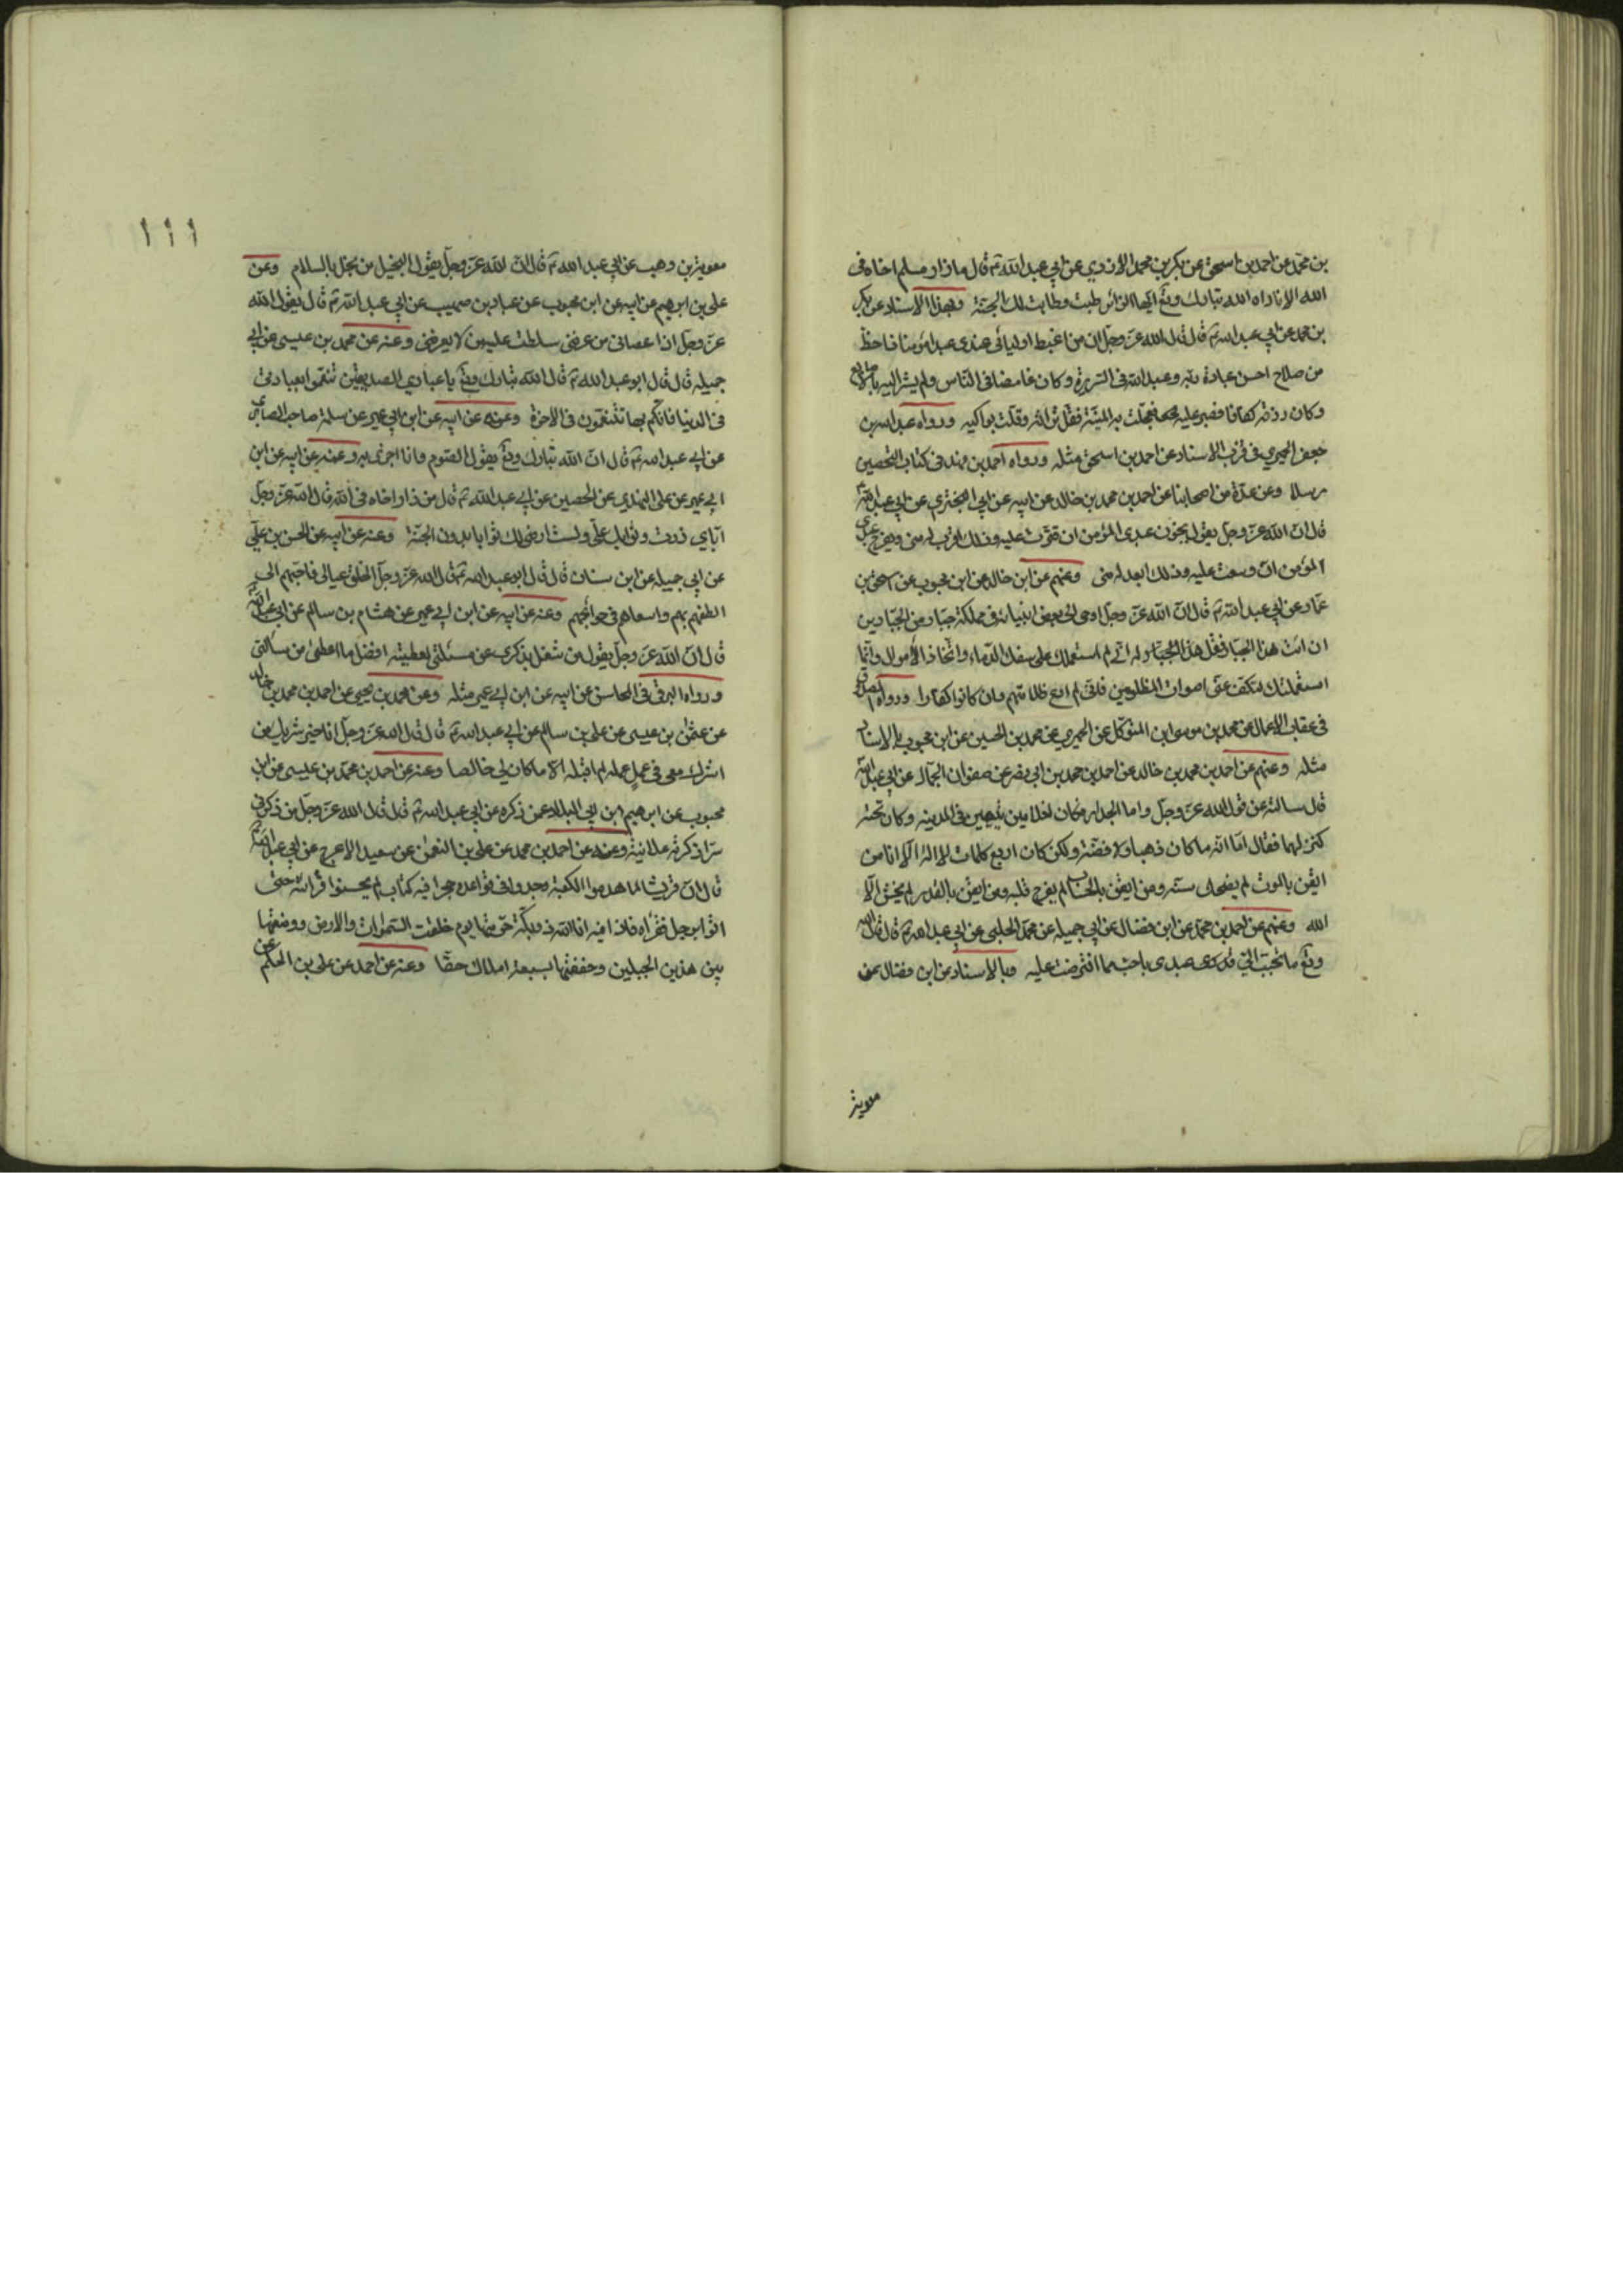 بن محمد عن احمد بن اسحق عن بكر بن محمد الازدي عن ابي عبد الله ع قال ما زار مسلم اخاه في
الله الا ناداه الله تبارك وتع ايها الزائر طبت وطابت لك الجنة وبهذا الاسناد عن بكر
بن محمد عن ابي عبد الله ع قال قال الله عز وجل ان من اغبط اوليائي عندي عبدا مؤمنا ذا حظ
من صلاح احسن عبادة ربه وعبد الله في السريرة وكان غامضا في الناس ولم يشر اليه بالاصابع
وكان رزقه كفافا فصبر عليه فعجلت به المنية فقل تراثه وقلت بواكيه ورواه عبد الله بن
جعفر الحميري في قرب الاسناد عن احمد بن اسحق مثله ورواه احمد بن فهد في كتاب التحصين
مرسلا وعن عدة من اصحابنا عن احمد بن محمد بن خالد عن ابيه عن ابي البختري عن ابي عبد الله ع
قال ان الله عز وجل يقول يحزن عبدى المؤمن ان قترت عليه وذلك اقرب له منى ويفرح عبدي
المؤمن ان وسعت عليه وذلك ابعد له منى وعنهم عن ابن خالد عن ابن محبوب عن اسحق بن
عمار عن ابي عبد الله ع قال ان الله عز وجل اوحى الى بعض انبيائه في مملكة جبار من الجبارين
ان ائت هذا الجبار فقل هذا الجبار له اني لم استعملك على سفك الدماء واتخاذ الاموال وانما
استعملتك لتكف عنى اصوات المظلومين فاني لم ادع ظلامتهم وان كانوا كفارا ورواه الصدوق
في عقاب الاعمال عن محمد بن موسى ابن المتوكل عن الحميري عن محمد بن الحسين عن ابن محبوب بالاسناد
مثله وعنهم عن احمد بن محمد بن خالد عن احمد بن محمد بن ابي نصر عن صفوان الجمال عن ابي عبد الله ع
قال سالته عن قول الله عز وجل واما الجدار فكان لغلامين يتيمين في المدينه وكان تحته
كنز لهما فقال اما انه ما كان ذهبا ولا فضة ولكن كان اربع كلمات لا اله الا انا من
ايقن بالموت لم يضحك سنه ومن ايقن بالحساب لم يفرح قلبه ومن ايقن بالقدر لم يخش الا
الله وعنهم عن احمد بن محمد عن ابن فضال عن ابي جميله عن محمد الحلبي عن ابي عبد الله ع قال قال الله
وتع ما تحبب الي عبدى باحب مما افترضت عليه وبالاسناد عن ابن فضال عن
معوية
١١١
معوية بن وهب عن ابي عبد الله ع قال ان الله عز وجل يقول البخيل من يبخل بالسلام وعن
على بن ابرهيم عن ابيه عن ابن محبوب عن عباد بن صهيب عن ابي عبد الله ع قال يقول الله
عز وجل اذا عصاني من عرفني سلطت عليه من لا يعرفنى وعنه عن محمد بن عيسى عن ابي
جميله قال قال ابو عبد الله ع قال الله تبارك وتع يا عبادي الصديقين تنعموا بعبادتي
في الدنيا فانكم بها تتنعمون في الاخرة وعنه عن ابيه عن ابن ابي عمير عن سلمة صاحب الصابري
عن ابي عبد الله ع قال ان الله تبارك وتع يقول الصوم لي وانا اجزى به وعنه عن ابيه عن ابن
ابي عمير عن على النهدي عن الحصين عن ابي عبد الله ع قال من زار اخاه في الله قال الله عز وجل
اياي زرت وثوابك علي ولست ارضى لك ثوابا بدون الجنة وعنه عن ابيه عن الحسن بن علي
عن ابي جميله عن ابن سنان قال قال ابو عبد الله ع قال الله عز وجل الخلق عيالى فاحبهم الي
الطفهم بهم واسعاهم في حوائجهم وعنه عن ابيه عن ابن ابي عمير عن هشام بن سالم عن ابي عبد الله ع
قال ان الله عز وجل يقول من شغل بذكرى عن مسئلتي اعطيته افضل ما اعطى من سالني
ورواه البرقي في المحاسن عن ابيه عن ابن ابي عمير مثله وعن محمد بن يحيى عن احمد بن محمد بن خالد
عن عثمن بن عيسى عن على بن سالم عن ابي عبد الله ع قال قال الله عز وجل انا خير شريك من
اشرك معى في عمل عمله لم اقبله الا ما كان لي خالصا وعنه عن احمد بن محمد بن عيسى عن ابن
محبوب عن ابرهيم ابن ابي البلاد عمن ذكره عن ابي عبد الله ع قال قال الله عز وجل من ذكرني
سرا ذكرته علانية وعنه عن احمد بن محمد عن على بن النعمن عن سعيد الاعرج عن ابي عبد الله ع
قال ان قريشا لما هدموا الكعبة وجدوا في قواعده حجرا فيه كتاب لم يحسنوا قرائته حتى
اتوا برجل فقراه فاذا فيه انا الله ذو بكة حرمتها يوم خلقت السموات والارض ووضعتها
بين هذين الجبلين وحففتها بسبعة املاك حفا وعنه عن احمد عن على بن الحكم عن